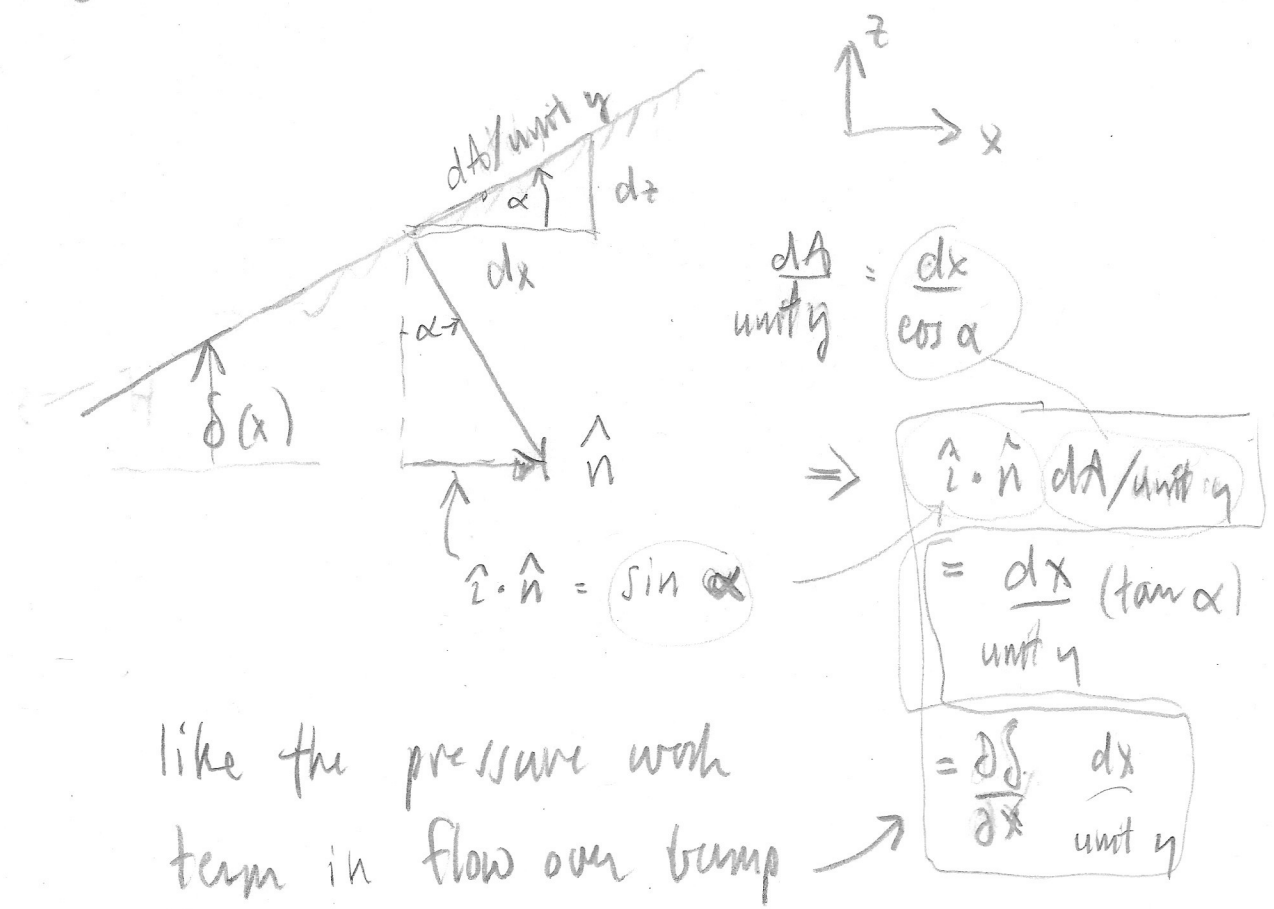 z
x
dA/unit y
α
dz
dx
α
δ(x)
n̂
î · n̂ = sin α
dA/unit y = dx/cos α
⇒ î · n̂ dA/unit y
= dx/unit y (tan α)
= ∂δ/∂x dx/unit y
like the pressure work
term in flow over bump